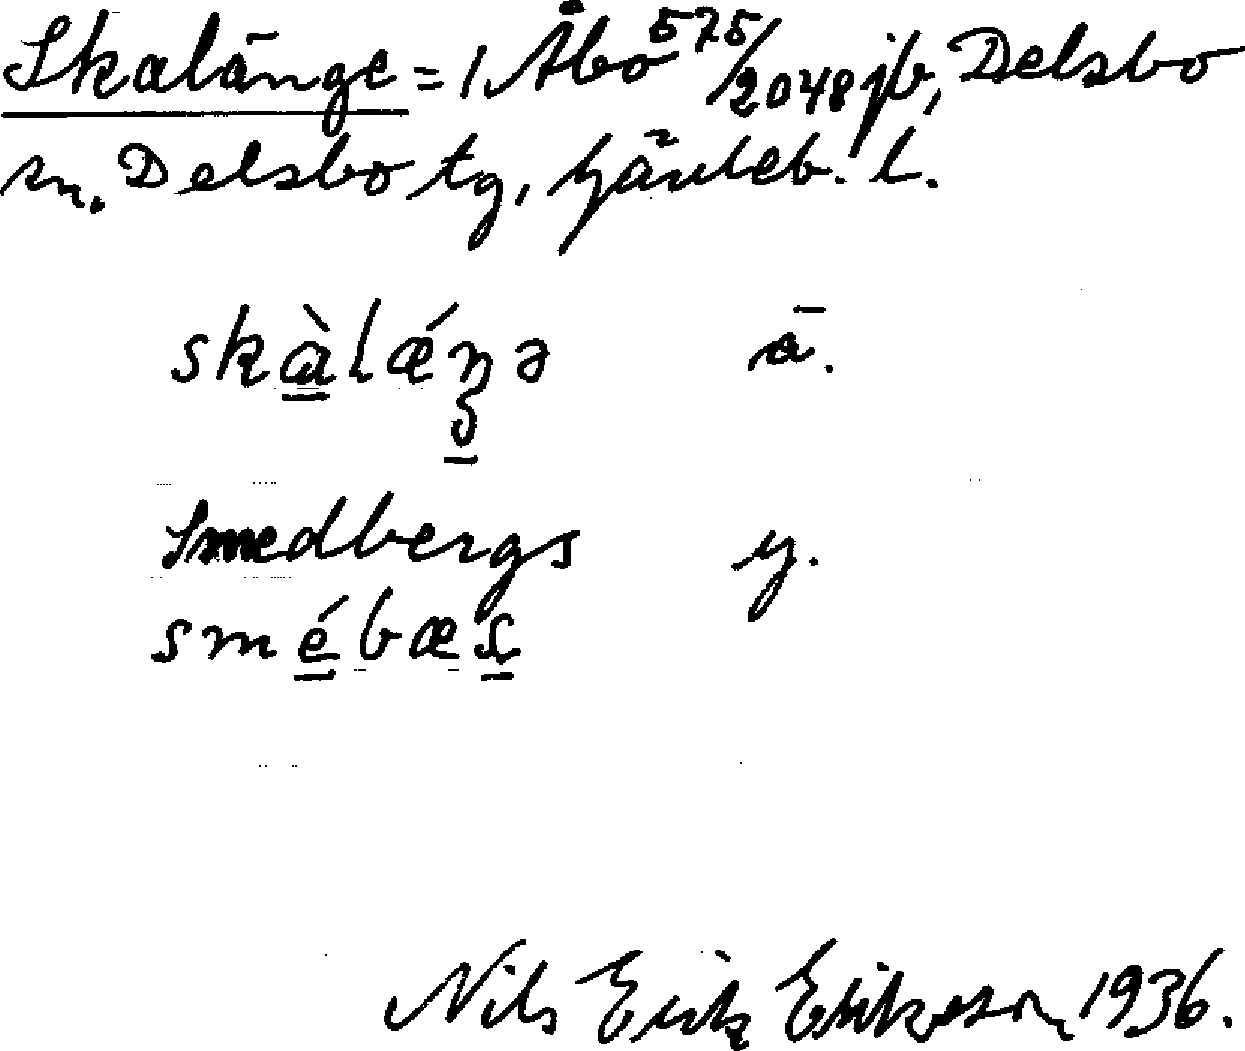 Skalänge = 1. Åbo 575/2048 jb, Delsbo
sn. Delsbo tg, Gävleb. l.
skàlǽŋə ä.
Smedbergs y.
smébæs
Nils Erik Eriksson 1936.